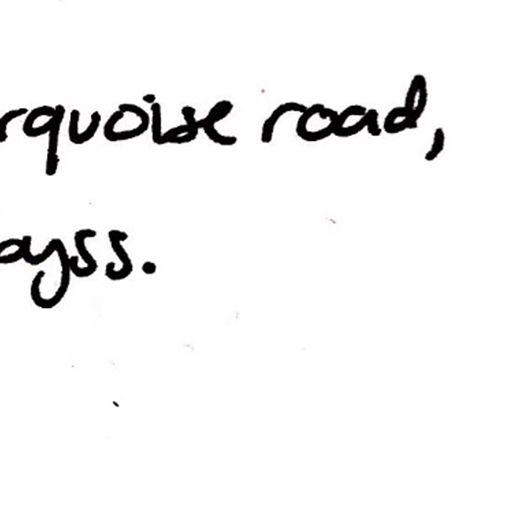 rquoise road,
byss.